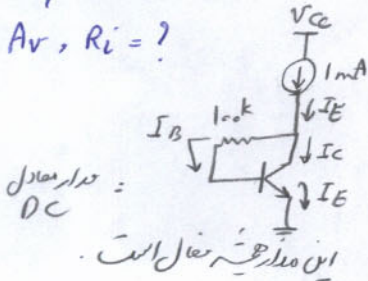 Av, Ri = ?
Vcc
1mA
IE
100k
IB
IC
IE
مدار معادل :
DC
این مدار همیشه فعال است.